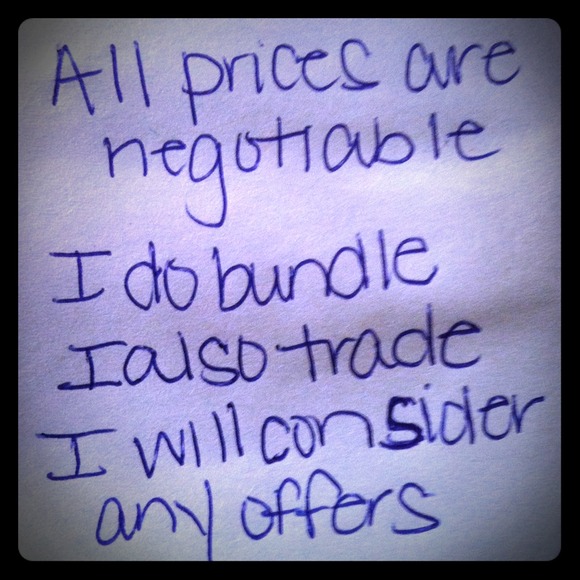 All prices are
negotiable
I do bundle
I also trade
I will consider
any offers